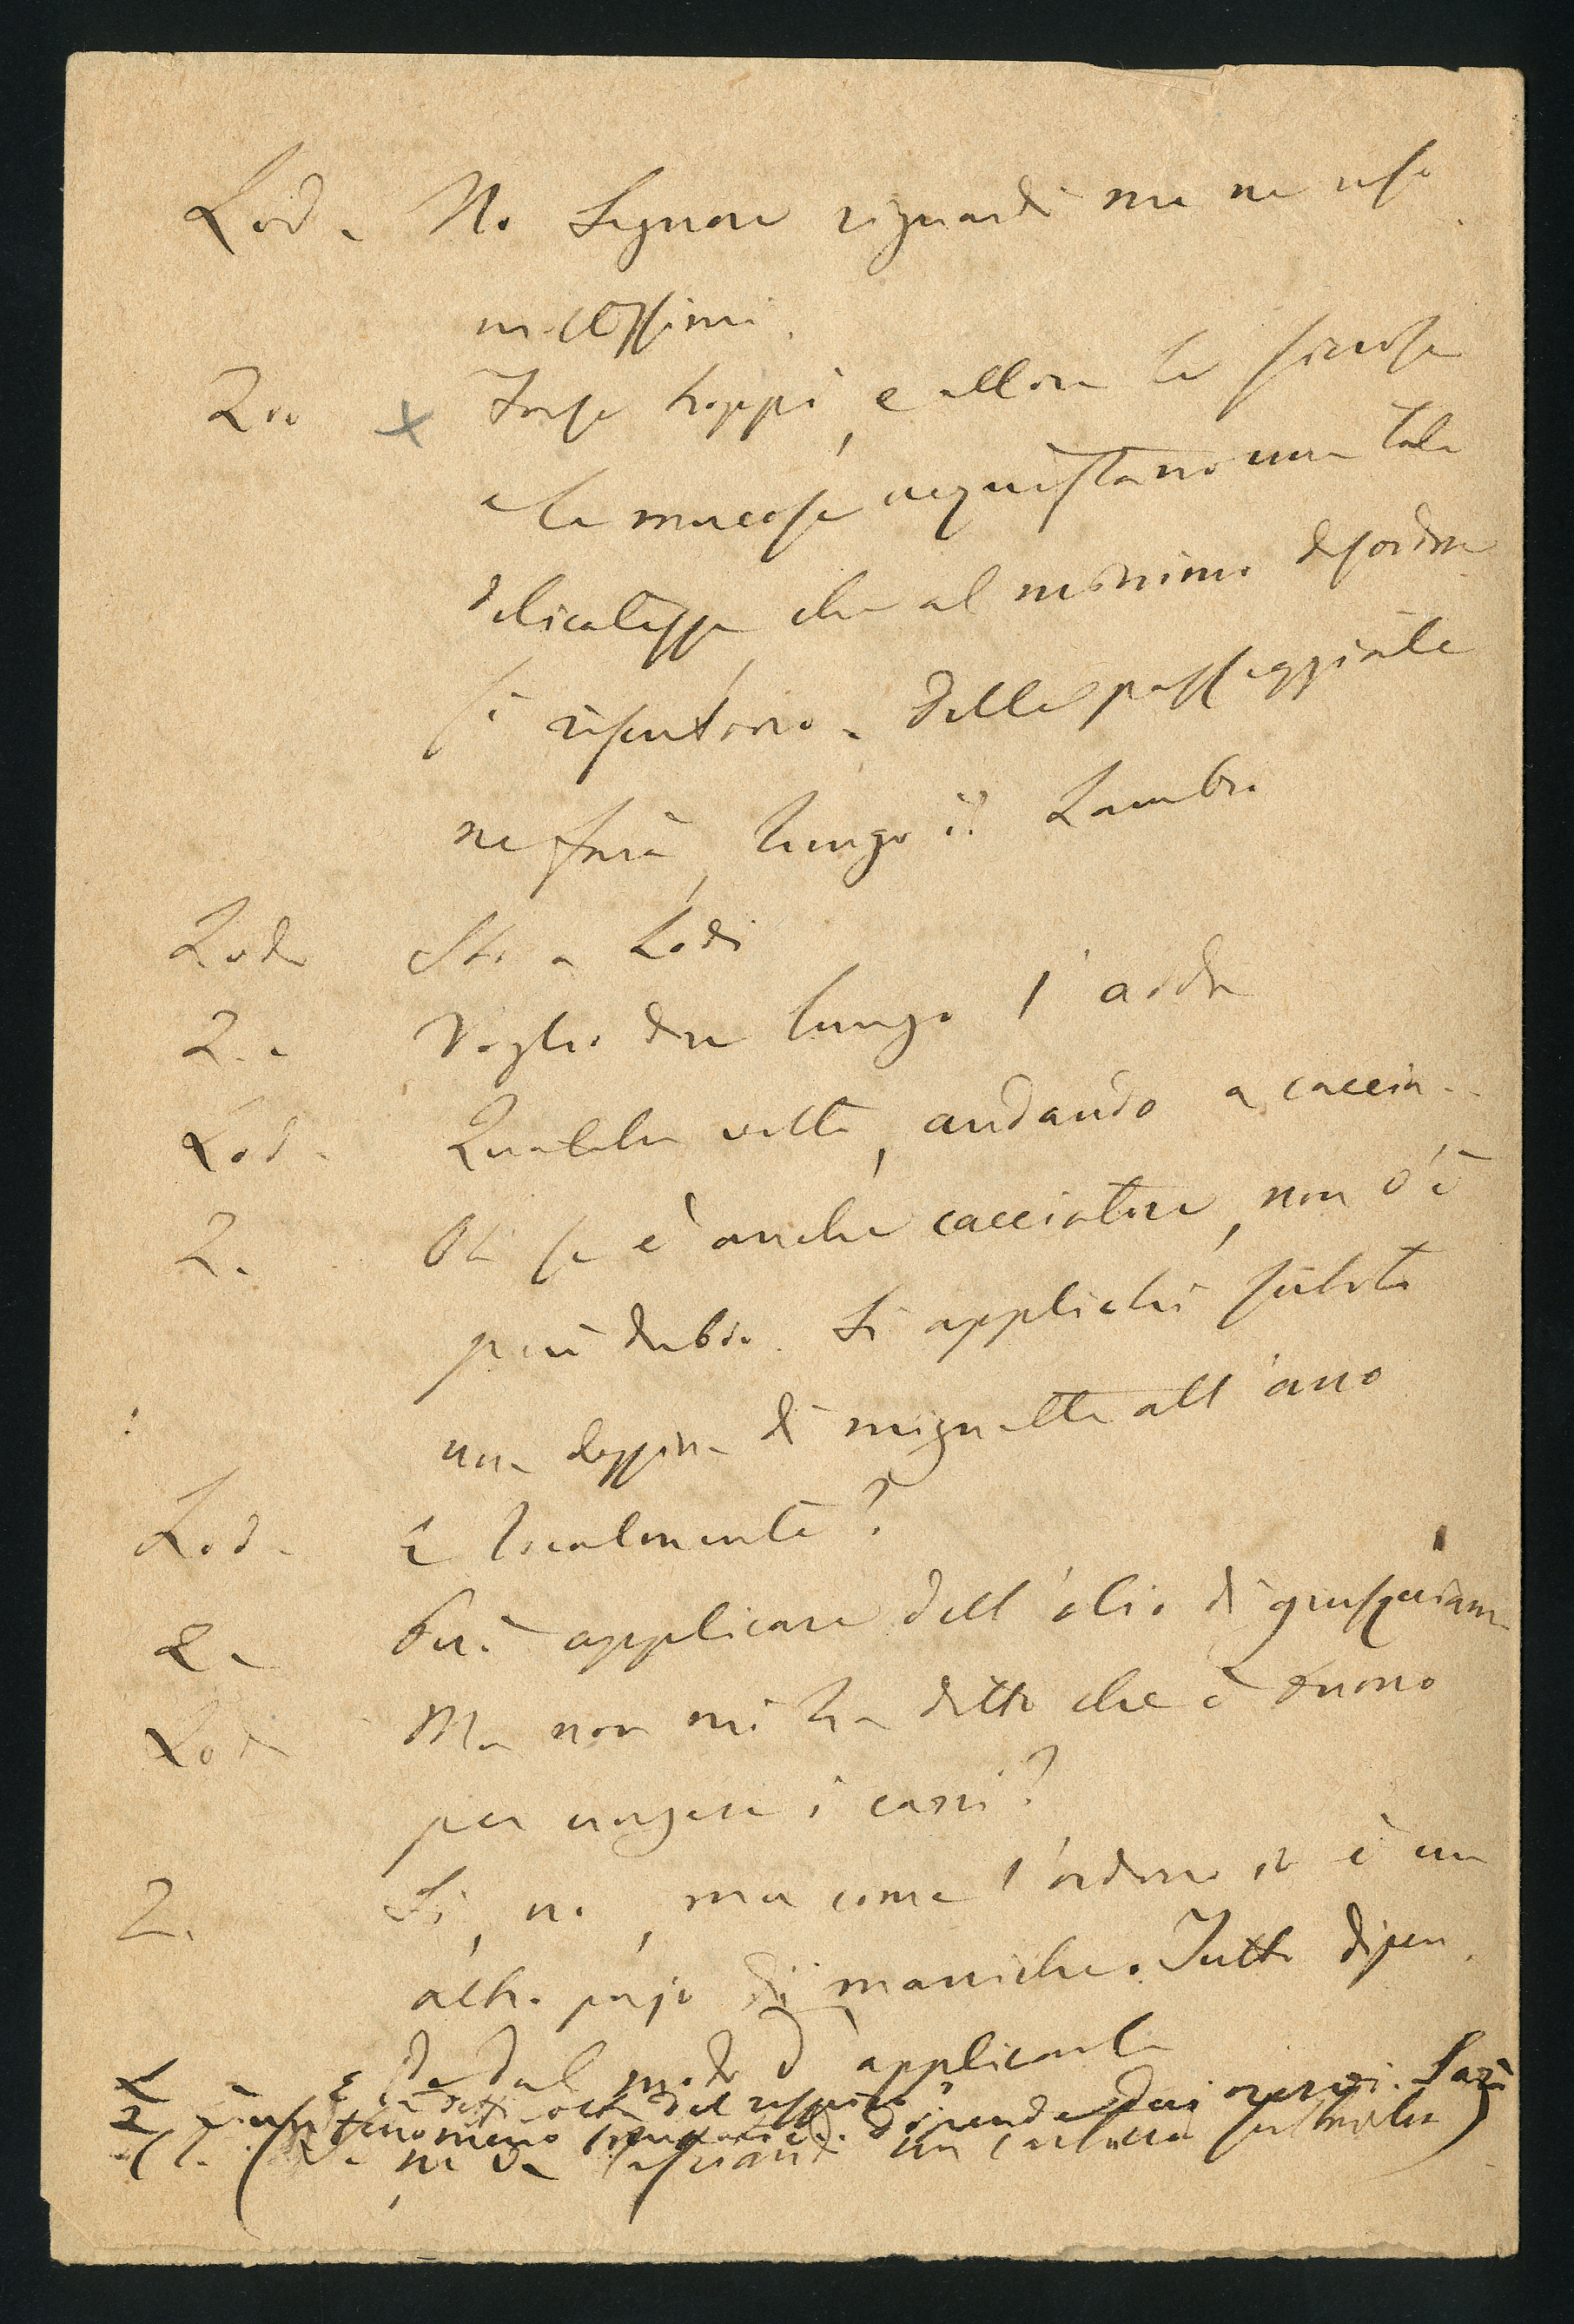 Lod - No Signore riguardi me ne uso
moltissimi.
Zoo x Forse troppi, e allora le sierose
e le mucose acquistano una tale
delicatezza, che al menomo disordine
si risentono - Delle passeggiate
ne farà, lungo il Lambro
Lod - Sto a Lodi
Z. - Voglio dire lungo l'adda
Lod - Qualche volta, andando a caccia -
Z. Oh se è anche cacciatore, non c'è
più dubbio. Si applichi subito
una dozzina di mignatte all'ano
Lod - E localmente?
Z - Può applicare dell'olio di giusquiamo
Lod - Ma non mi ha detto che è buono
per ungere i carri?
Z. Si, no, ma come l'ordino io è un
altro pajo di maniche. Tutto dipen
de dal modo d'applicarlo
L - E
Z è un fenomeno dipende dai nervi. Sarà
(l. (Se ne va lasciando